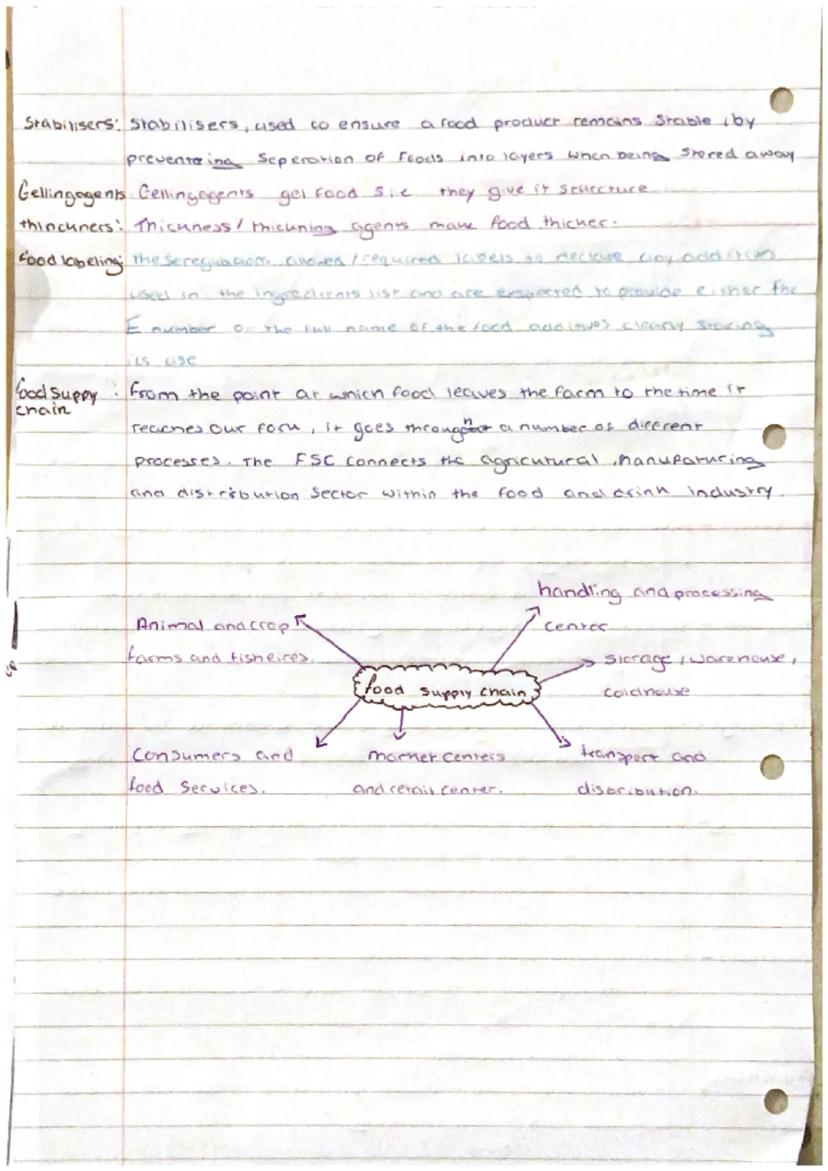 Stabilisers: Stabilisers, used to ensure a food product remains stable, by
preventing Seperation of foods into layers when being stored away
Gellingagents Gellingagents gel food s i.e they give it structure
thinckners: Thickness / thickning agents make food thicker.
food labeling: These regulations allowed / required labels to declare any additives
used in the ingredients list and are expected to provide either the
E number or the full name of the food additives clearly stating
its use
food supply chain : From the point at which food leaves the farm to the time it
reaches our fork, it goes through a number of different
processes. The FSC connects the agricutural, manufaturing
and distribution sector within the food and drink industry.
handling and processing
center
Animal and crop
farms and fisheires.
storage, warehouse,
coldhouse
food supply chain
Consumers and
food services.
market centers
and retail center.
transport and
distribution.